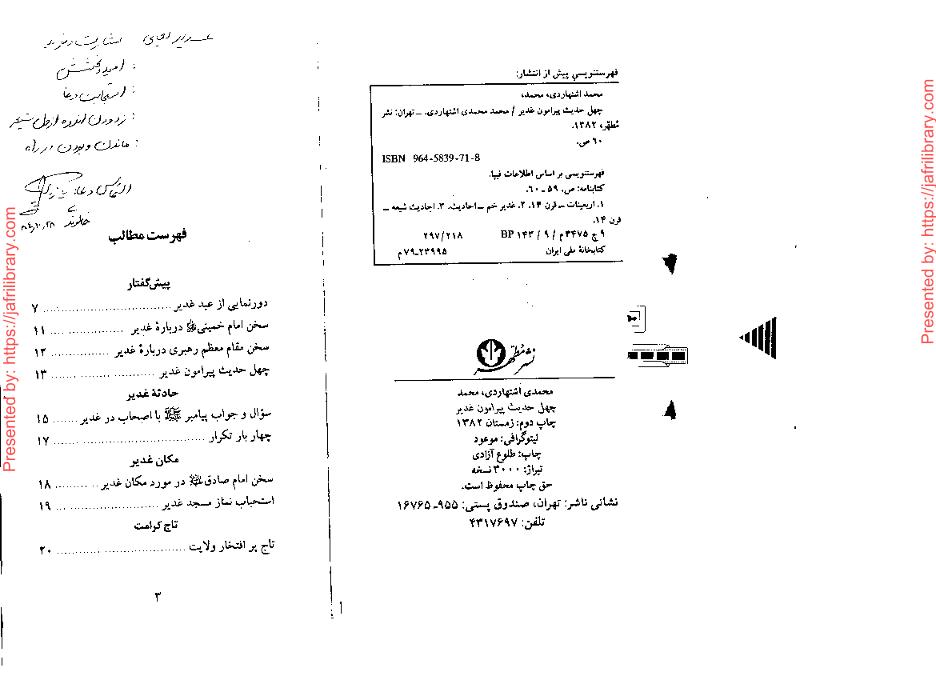 فهرستنویسی پیش از انتشار:
محمد اشتهاردی، محمد،
چهل حدیث پیرامون غدیر / محمد محمدی اشتهاردی. ــ تهران: نشر
مُطهّر، ۱۳۸۲.
۶۰ ص.
ISBN 964-5839-71-8
فهرستنویسی بر اساس اطلاعات فیپا.
کتابنامه: ص. ۵۹ ـ ۶۰.
۱. اربعینات ــ قرن ۱۴. ۲. غدیر خم ــ احادیث. ۳. احادیث شیعه ــ
قرن ۱۴.
۹ چ ۳۴۷۵ م / ۹ / ۱۴۳ BP ۲۹۷/۲۱۸
کتابخانهٔ ملی ایران ۲۳۹۹۵ـ۷۹م
نشر مُطهّر
محمدی اشتهاردی، محمد
چهل حدیث پیرامون غدیر
چاپ دوم: زمستان ۱۳۸۲
لیتوگرافی: موعود
چاپ: طلوع آزادی
تیراژ: ۳۰۰۰ نسخه
حق چاپ محفوظ است.
نشانی ناشر: تهران، صندوق پستی: ۹۵۵ـ۱۶۷۶۵
تلفن: ۴۳۱۷۶۹۷
: امید
: استجابت دعا
: ماندن و بودن در راه
فهرست مطالب
پیش‌گفتار
دورنمایی از عید غدیر ........ ۷
سخن امام خمینی دربارهٔ غدیر ........ ۱۱
سخن مقام معظم رهبری دربارهٔ غدیر ........ ۱۲
چهل حدیث پیرامون غدیر ........ ۱۳
حادثهٔ غدیر
سؤال و جواب پیامبر ﷺ با اصحاب در غدیر ........ ۱۵
چهار بار تکرار ........ ۱۷
مکان غدیر
سخن امام صادق در مورد مکان غدیر ........ ۱۸
استحباب نماز مسجد غدیر ........ ۱۹
تاج کرامت
تاج پر افتخار ولایت ........ ۲۰
۳
Presented by: https://jafrilibrary.com
Presented by: https://jafrilibrary.com